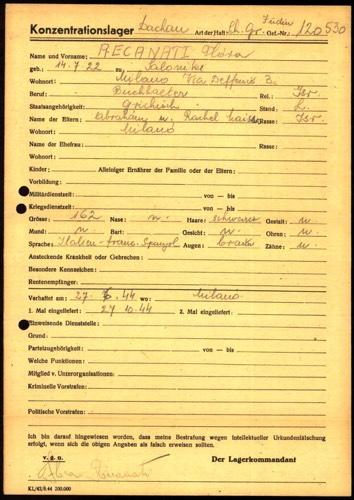 Jüdin
Konzentrationslager Dachau Art der Haft: Gef.-Nr.: 120530
Name und Vorname: RECANATI Flora
geb.: 14.7.22 zu Saloniker
Wohnort: Milano Via
Beruf: Buchhalter Rel.: Isr.
Staatsangehörigkeit: Griechisch Stand: L.
Name der Eltern: Abraham u. Rachel Rasse: Isr.
Wohnort: Milano
Name der Ehefrau: Rasse:
Wohnort:
Kinder: Alleiniger Ernährer der Familie oder der Eltern:
Vorbildung:
Militärdienstzeit: von — bis
Kriegsdienstzeit: von — bis
Grösse: 162 Nase: n. Haare: schwarz Gestalt: n.
Mund: n. Bart: Gesicht: n. Ohren: n.
Sprache: Italien-franc. Augen: Zähne: n.
Ansteckende Krankheit oder Gebrechen:
Besondere Kennzeichen:
Rentenempfänger:
Verhaftet am: 44 wo: Milano
1. Mal eingeliefert: 27 10.44 2. Mal eingeliefert:
Einweisende Dienststelle:
Grund:
Parteizugehörigkeit: von — bis
Welche Funktionen:
Mitglied v. Unterorganisationen:
Kriminelle Vorstrafen:
Politische Vorstrafen:
Ich bin darauf hingewiesen worden, dass meine Bestrafung wegen intellektueller Urkundenfälschung
erfolgt, wenn sich die obigen Angaben als falsch erweisen sollten.
v. g. u. Der Lagerkommandant
KL/42/8.44 200.000